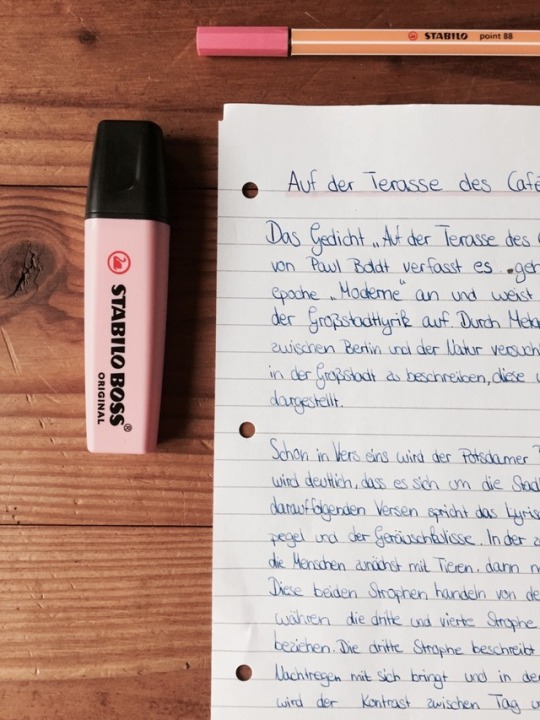 STABILO point 88
STABILO BOSS®
ORIGINAL
Auf der Terasse des Café
Das Gedicht „Auf der Terasse des
von Paul Boldt verfasst es geh
epoche „Moderne" an und weist
der Großstadtlyrik auf. Durch Meta
zwischen Berlin und der Natur versuch
in der Großstadt zu beschreiben, diese
dargestellt.
Schon in Vers eins wird der Potsdamer
wird deutlich, dass es sich um die Stad
darauffolgenden Versen spricht das Lyris
pegel und der Geräuschkulisse. In der
die Menschen zunächst mit Tieren, dann
Diese beiden Strophen handeln von de
währen die dritte und vierte Strophe
beziehen. Die dritte Strophe beschreibt
Nachtregen mit sich bringt und in der
wird der Kontrast zwischen Tag u